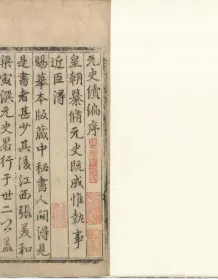 元史續編序
皇朝纂脩元史既成惟執事
近臣得
賜摹本版藏中秘書人間得見
是書者甚少其後江西張美和
梁寅潠元史畧行于世二公蓋